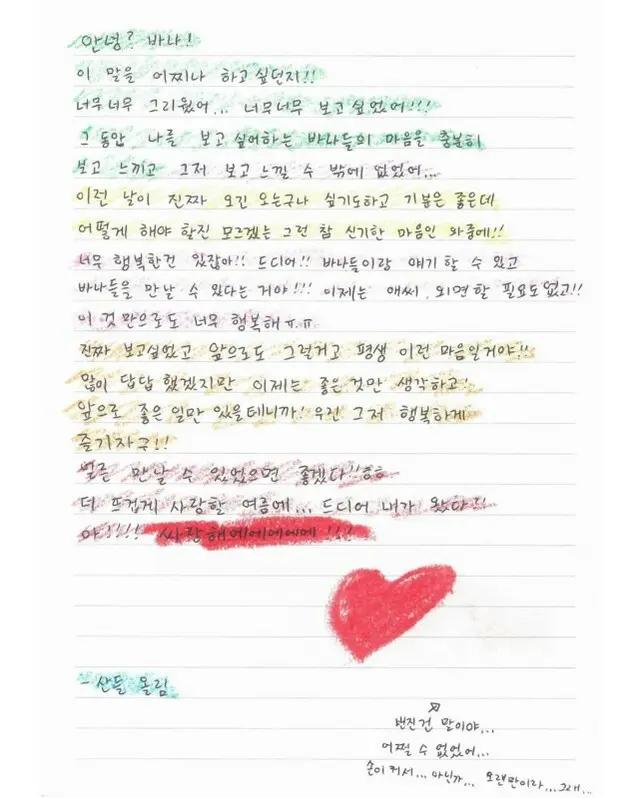 안녕? 바나!
이 말을 어찌나 하고싶던지!!
너무너무 그리웠어... 너무너무 보고싶었어!!!
그 동안 나를 보고싶어하는 바나들의 마음을 충분히
보고 느끼고 그저 보고 느낄 수 밖에 없었어...
이런 날이 진짜 오긴 오는구나 싶기도하고 기분은 좋은데
어떻게 해야 할진 모르겠는 그런 참 신기한 마음인 와중에!!
너무 행복한건 있잖아!! 드디어!! 바나들이랑 얘기 할 수 있고
바나들을 만날 수 있다는 거야!!! 이제는 애써 외면할 필요도없고!!
이 것 만으로도 너무 행복해ㅠㅠ
진짜 보고싶었고 앞으로도 그럴거고 평생 이런 마음일거야!!
많이 답답했겠지만 이제는 좋은것만 생각하고!
앞으로 좋은 일만 있을테니까! 우린 그저 행복하게
즐기자구!!
얼른 만날 수 있었으면 좋겠다!!ㅎㅎ
더 뜨겁게 사랑할 여름에... 드디어 내가 왔다!!
아!!!! 싸랑해에에에에에!!!
- 산들 올림
번진건 말이야...
어쩔 수 없었어...
손이 커서... 아닌가... 오랜만이라... 그래...